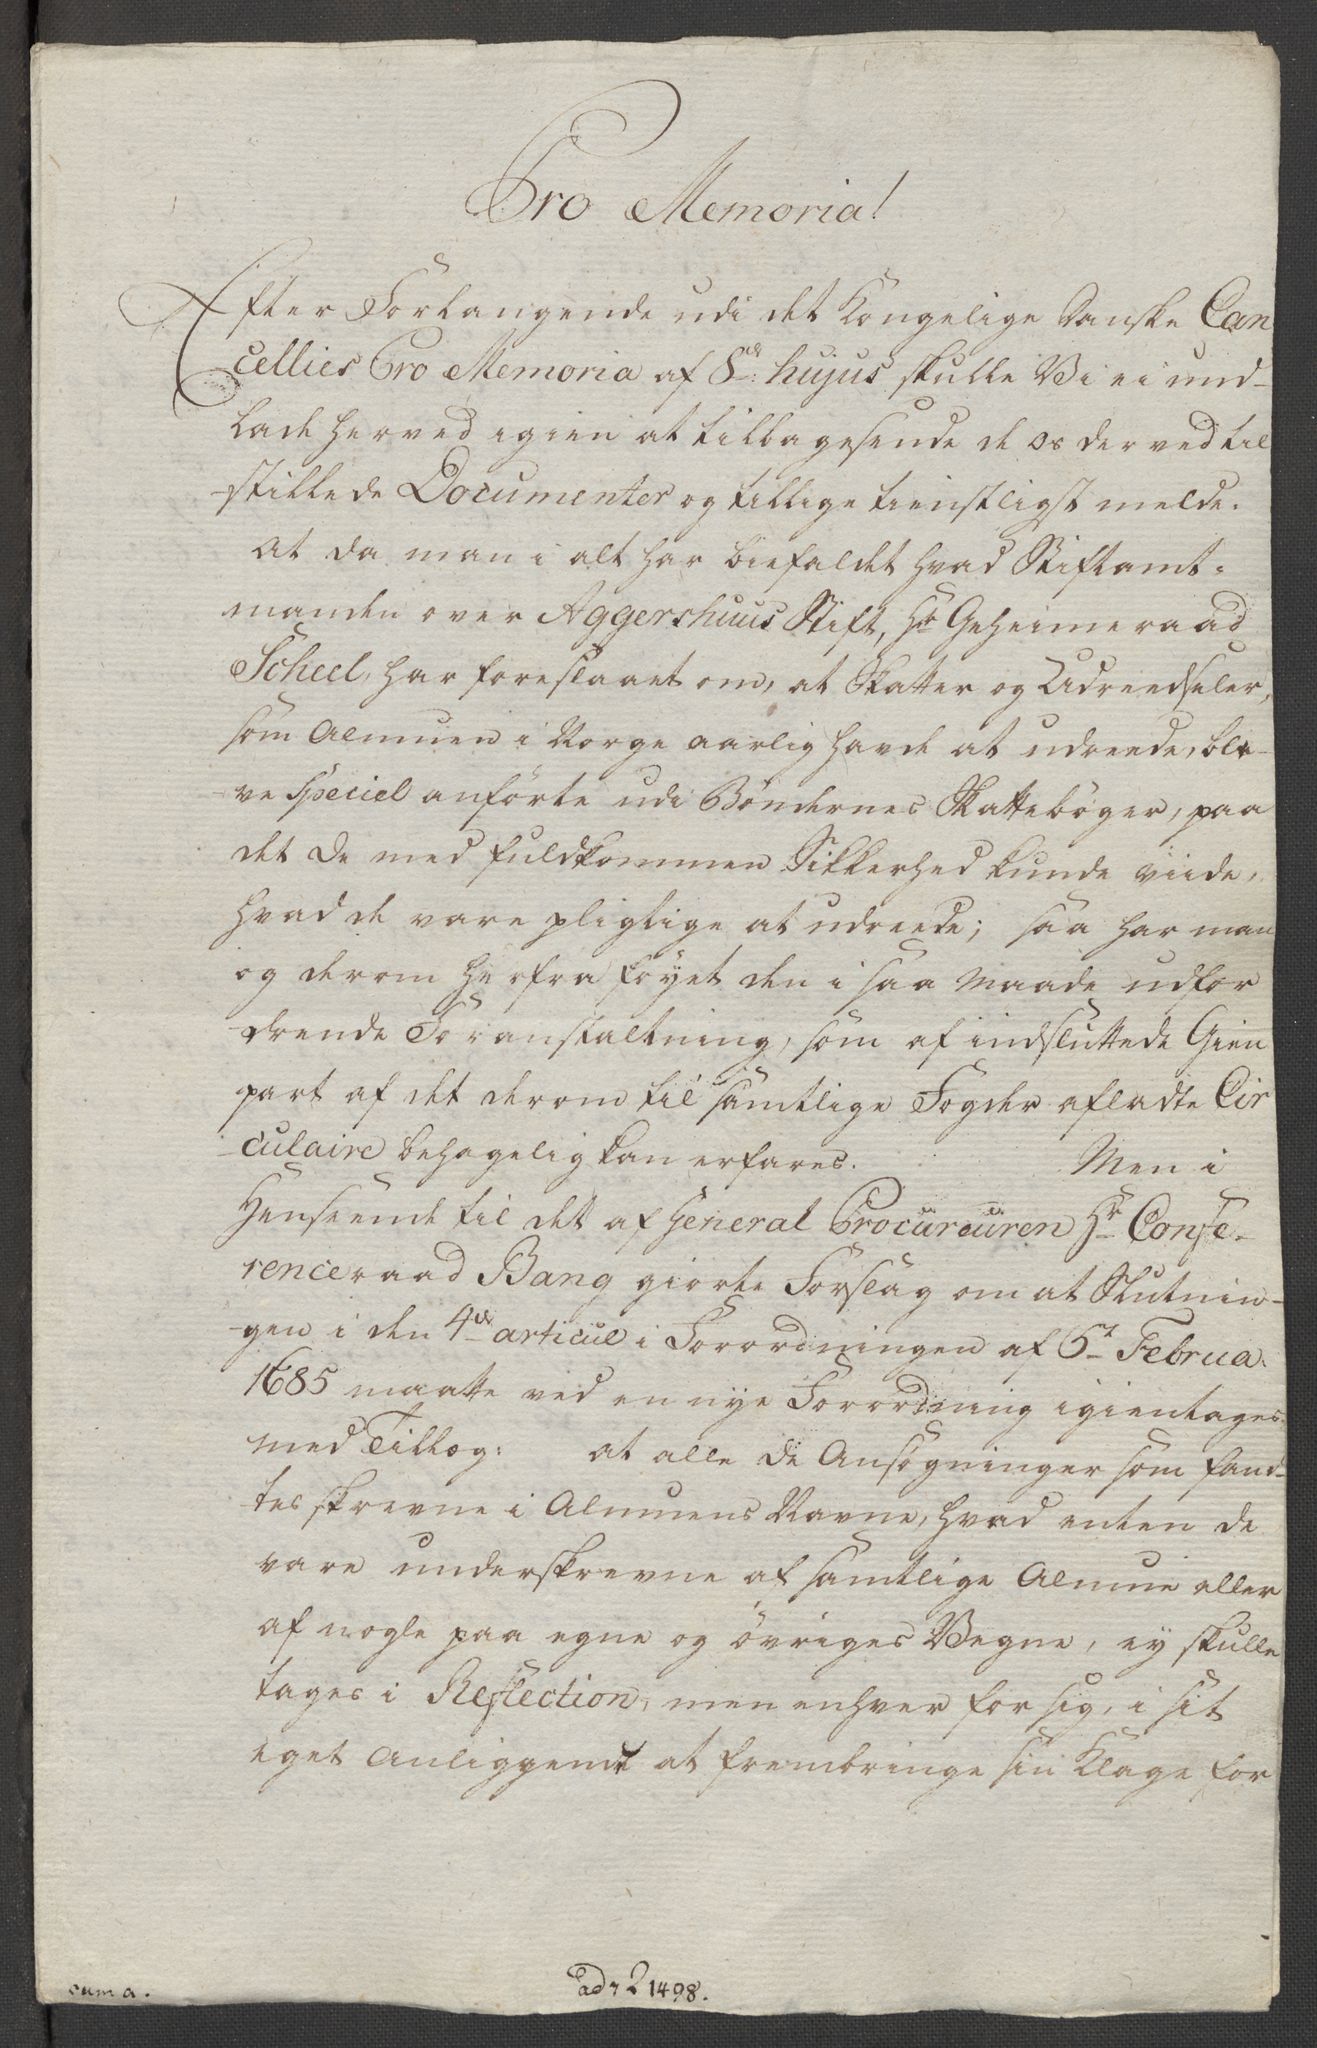 Pro Memoria!
Efter Forlangende udi det Kongelige Danske Can
cellies Pro Memoria af 8de hujus skulle Vi ei und-
lade herved igien at tilbagesende de os derved til
stillede Documenter og tillige tienstligst melde.
at da man i alt har biefaldet hvad Stiftamt-
manden over Aggershuus Stift, Hr Geheimeraad
Scheel, har foreslaaet om, at Skatter og Udreedseler,
som Almuen i Norge aarlig havde at udreede, ble-
ve speciel anförte udi Böndernes Skatteböger, paa
det de med fuldkommen Sikkerhed kunde viide,
hvad de vare pligtige at udreede; saa har man
og derom herfra föyet den i saa Maade udfor
drende Foranstaltning, som af indsluttede Gien
part af det derom til samtlige Fogder afladte Cir
culaire behagelig kan erfares. Men i
Henseende til det af General Procureuren Hr Confe-
renceraad Bang giorte Forslag om at Slutnin-
gen i den 4de articul i Forordningen af 5t Februa.
1685 maatte ved en nye Forordning igientages
med Tillæg: at alle de Ansögninger som fand-
tes skrevne i Almuens Navne, hvad enten de
vare underskrevne af samtlige Almue eller
af nogle paa egne og övriges Vegne, ey skulle
tages i Reflection, men enhver for sig, i sit
eget Anliggende at frembringe sin Klage for
cum a.
ad 1498.